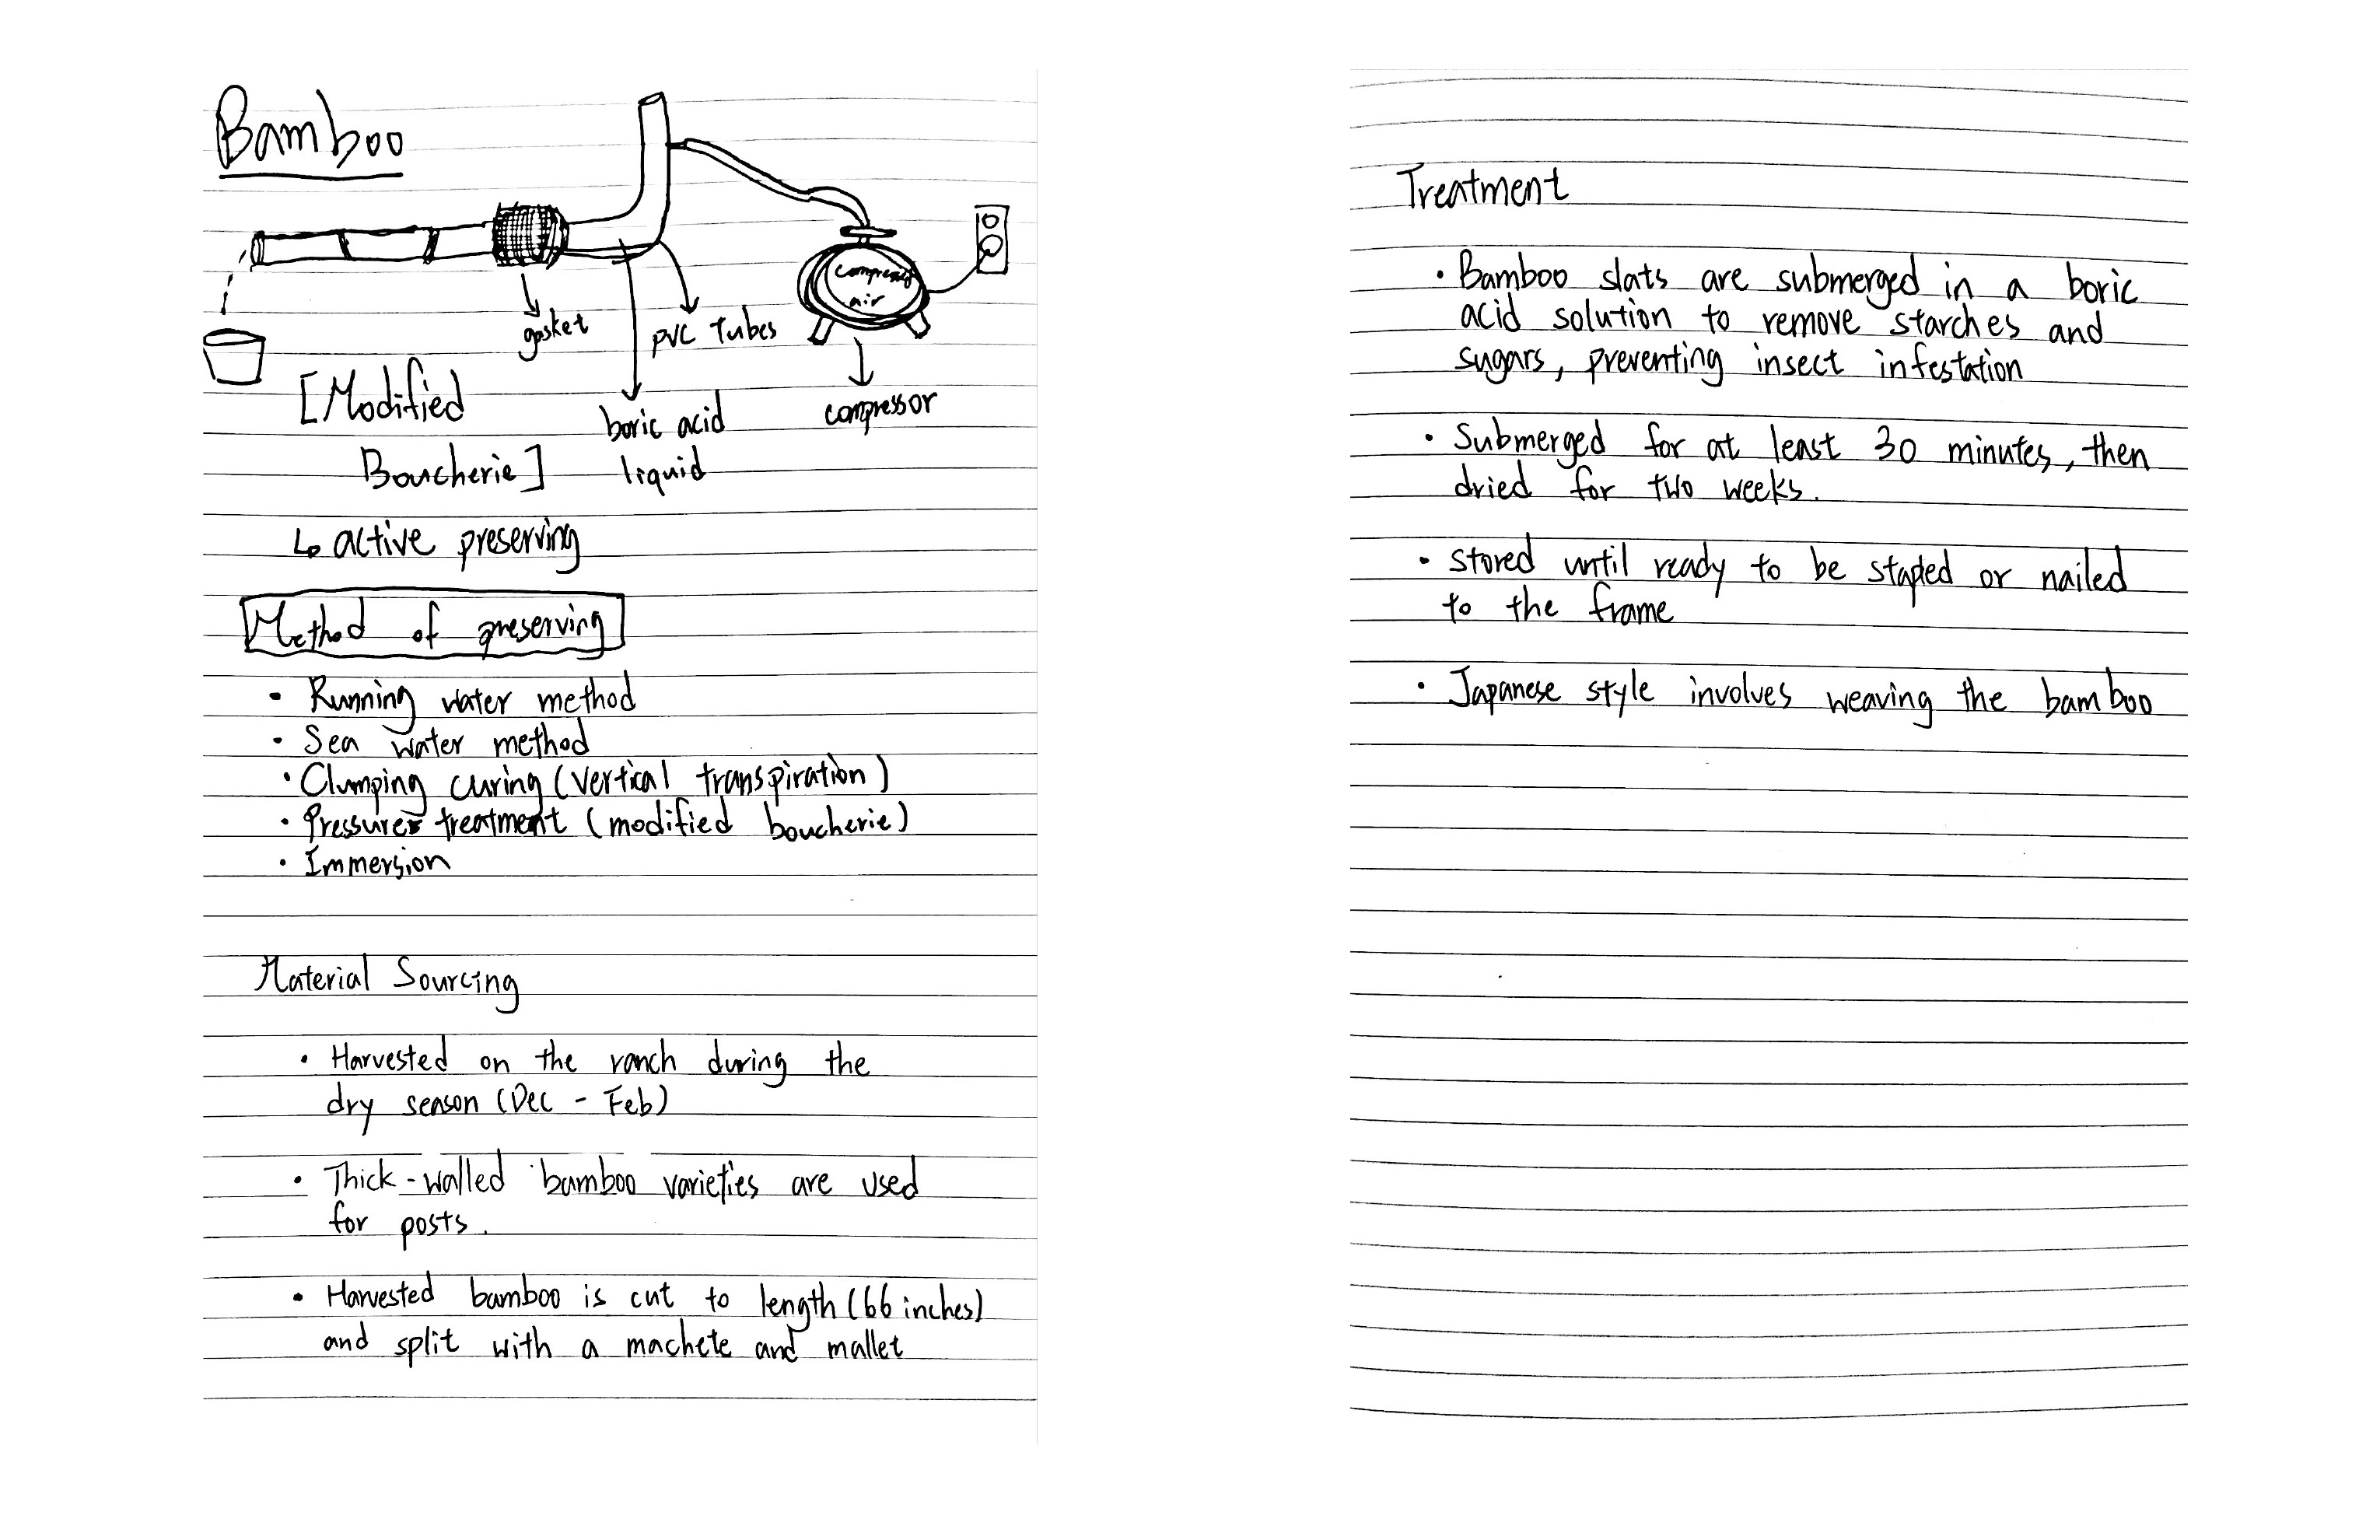 Bamboo
compressed
air
gasket
PVC Tubes
[Modified
Boucherie]
boric acid
liquid
compressor
↳ active preserving
Method of preserving
• Running water method
• Sea water method
• Clumping curing (vertical transpiration)
• Pressure treatment (modified boucherie)
• Immersion
Material Sourcing
• Harvested on the ranch during the
dry season (Dec - Feb)
• Thick-walled bamboo varieties are used
for posts.
• Harvested bamboo is cut to length (66 inches)
and split with a machete and mallet
Treatment
• Bamboo slats are submerged in a boric
acid solution to remove starches and
sugars, preventing insect infestation
• Submerged for at least 30 minutes, then
dried for two weeks.
• Stored until ready to be stapled or nailed
to the frame
• Japanese style involves weaving the bamboo